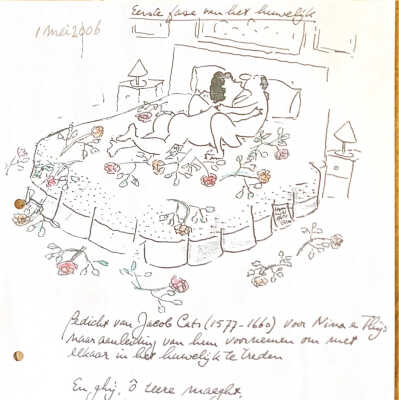 Eerste fase van het huwelijk
1 mei 2006
Gedicht van Jacob Cats (1577-1660) voor Nina en Thijs
naar aanleiding van hun voornemen om met
elkaar in het huwelijk te treden
En ghij, ô teere maeght,